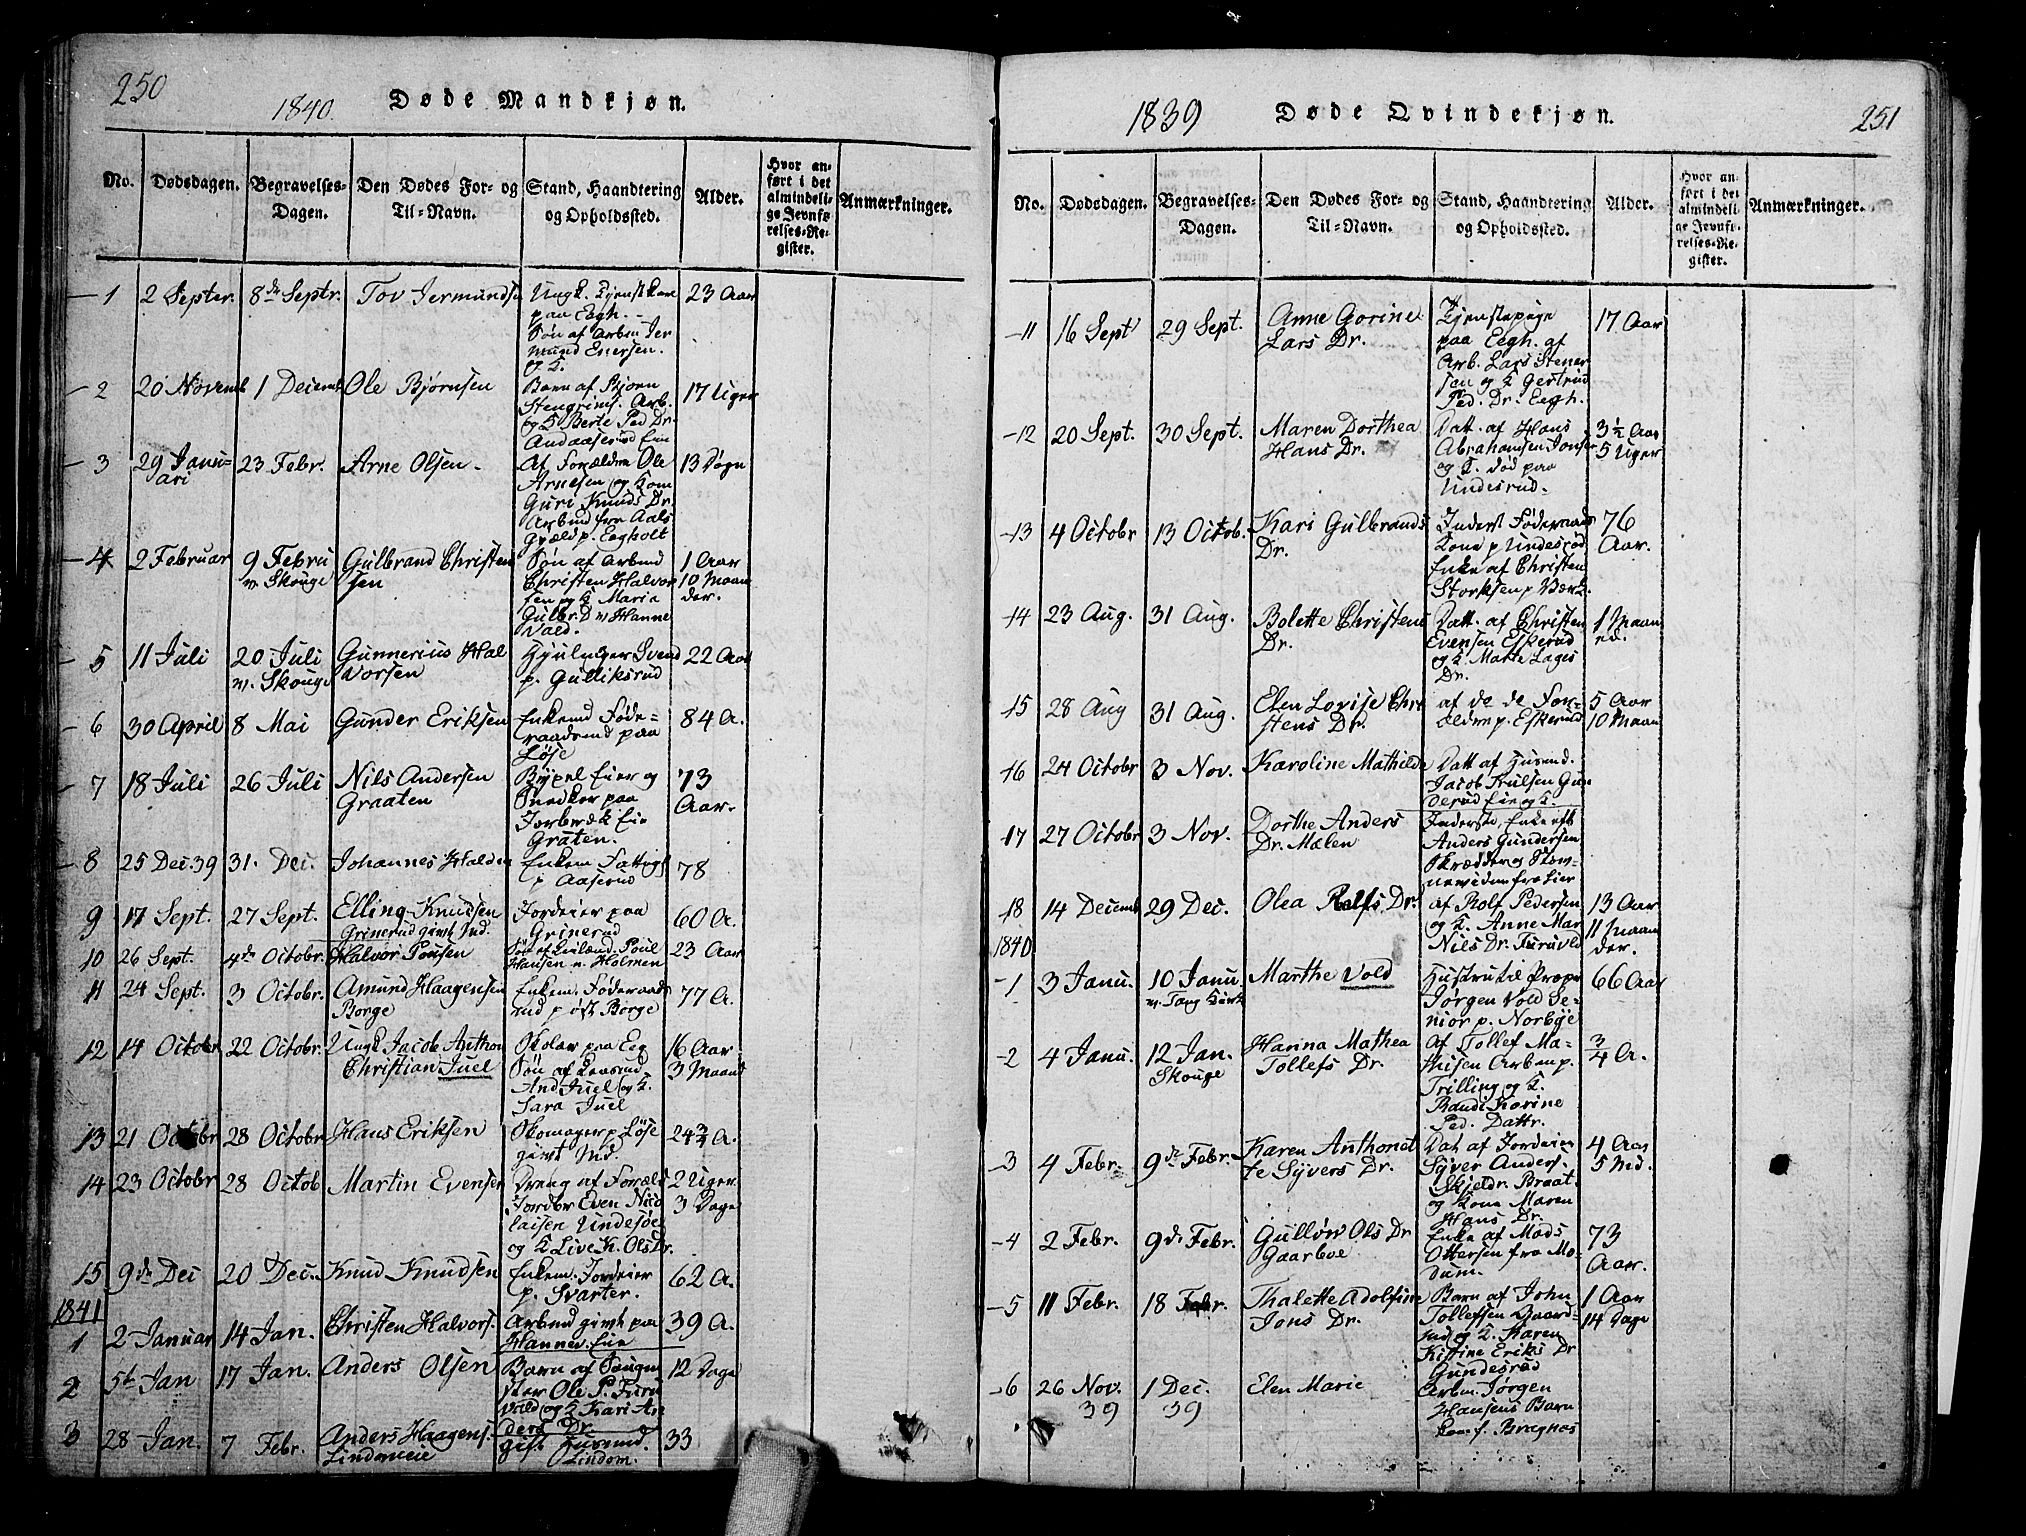 250
1840.
Døde Mandkjøn.
No.
Dødsdagen.
Begravelses-
Dagen.
Den Dødes For- og
Til-Navn.
Stand, Haandtering
og Opholdssted.
Alder.
Hvor an-
ført i det
almindeli-
ge Jevnfø-
relses-Re-
gister.
Anmærkninger.
1 2 Septer. 8de Septr. Tov Jermundsen
Ungk. Tjenstkarl
paa Eegh.
Søn af Arbm Jer
mund Enersen.
og K.
23 Aar
2 20 Novemb 1 Decemb Ole Bjørnsen
Barn af Bjørn
Stengrims. Arb.
og K Berte Ped Dr
Andaaserud Eie
17 Uger
3 29 Janu-
ari
23 Febr. Arne Olsen
Af Forældre Ole
Arnesen og Kone
Guri Knuds Dr
Arbmd fra Aals
Gjæld p. Eegholt
13 Døgn
4 2 Februar 9 Febru
v. Skouge
Gulbrand Christen
sen
Søn af Arbmd
Christen Halvor
sen og K Marie
Gulbr. D v Hanne
Vald.
1 Aar
10 Maan
der.
5 11 Juli 20 Juli
v. Skouge
Gunnerius Hal
vorsen
Hjulmger Svend
p. Gulliksrud
22 Aar
6 30 April 8 Mai Gunder Eriksen
Enkemd Føde-
raadsmd paa
Løse
84 A.
7 18 Juli 26 Juli Nils Andersen
Graaten
Bypel Eier og
Snedker paa
Jorbræk Eie
Graten.
73
Aar.
8 25 Dec. 39 31. Dec. Johannes Halden
Enkem Fattigl
p Aaserud
78
9 17 Sept. 27 Sept. Elling Knudsen
Grinerud givt Md.
Jordeier paa
Grinerud
60 A.
10 26 Sept. 4de Octobr. Halvor Poulsen
Søn af Poul
Hansen v. Holmen
23 Aar
11 24 Sept. 3 Octobr. Amund Haagensen
Borge
Enkem. Føderaads
md p øst Borge
77 A.
12 14 Octobr 22 Octobr. Ungk Jacob Anthon
Christian Juel
Skolær paa Eeg
Søn af
And Juel og K.
Sara Juel
16 Aar
3 Maand
13 21 Octobr 28 Octobr Hans Eriksen
Skomager p Løse
givt Md.
24 3/4 A.
14 23 Octobr 28 Octob Martin Evensen
Dreng af Foræld
Jordbr Even Nico
laisen Undesøe
og K Live K. Ols Dr.
2 Uger
3 Dage
15 9de Dec 20 Dec. Knud Knudsen
Enkem. Jordeier
p. Svarter.
62 A.
1841
1 2 Januar 14 Jan. Christen Halvors.
Arbmd givt paa
Hannev. Eie
39 A.
2 5te Jan 17 Jan. Anders Olsen
Barn af Saugm
ster Ole P. Furu
vald og K Kari An
ders Dr.
12 Dage
3 28 Jan. 7 Febr. Anders Haagens.
Lindomeie
gift Husmd.
Lindom.
33
1839
Døde Qvindekjøn.
251
No.
Dødsdagen.
Begravelses-
Dagen.
Den Dødes For- og
Til-Navn.
Stand, Haandtering
og Opholdssted.
Alder.
Hvor an-
ført i det
almindeli-
ge Jevnfø-
relses-Re-
gister.
Anmærkninger.
11 16 Sept 29 Sept. Anne Gorine
Lars Dr.
Tjenstepige
paa Eegh. af
Arb. Lars Stener
sen og K Gertrud
Ped. Dr. Eegh.
17 Aar
12 20 Sept. 30 Sept. Maren Dorthea
Hans Dr.
Datt. af Hans
Abrahamsen Jonser
og K. død paa
Undesrud.
3 1/2 Aar
5 Uger
13 4 Octobr 13 Octob. Kari Gulbrands
Dr.
Inderst Føderaads
Kone p Undesrød
Enke af Christen
Storksen p Værk.
76
Aar.
14 23 Aug. 31 Aug. Bolette Christens
Dr.
Datt. af Christen
Evensen Eskerud
og K. Matte Lages
Dr.
1 Maan
ed.
15 28 Aug 31 Aug. Elen Lovise Chri
stens Dr.
af de de For-
ældre p. Eskerud
5 Aar
10 Maan
16 24 Octobr 3 Nov. Karoline Mathilde
Datt af Husmd.
Jacob Trulsen Gun
derud Eie og K.
17 27 Octobr 3 Nov. Dorthe Anders
Dr. Mælen
Inderste, Enke eft
Anders Gundersen
Skrædder og Stem-
nevidne fra Lier
18 14 Decemb 29 Dec. Olea Rolfs Dr.
af Rolf Pedersen
og K. Anne Mar
Nils Dr. Furuvld
13 Aar
11 Maan
der.
1840
1 3 Janu. 10 Janu.
v. Tang Kirk
Marthe Vold
Hustru til Propr
Jørgen Vold Se-
nior p. Norbye
66 Aar
2 4 Janu. 12 Jan.
Skouge
Harina Mathea
Tollefs Dr.
Af Tollef Ma-
thisen Arbm p.
Trilling og K.
Randi Karine
Ped. Dattr.
3/4 A.
3 4 Febr. 9de Febr. Karen Anthonet
te Syvers Dr.
Dat af Jordeier
Syver Anders.
Skjeldr. Braat
og Kone Maren
Hans Dr.
4 Aar
5 Md.
4 2 Febr. 9de Febr. Gulløw Ols Dr
Gaarboe
Enke af Mads
Ottersen fra Mo-
dum.
73
Aar.
5 11 Febr. 18 Febr. Thalette Adolfine
Jons Dr.
Barn af John
Tollefsen Gaard-
md og K. Karen
Kistine Eriks Dr
Gundesrud
1 Aar
14 Dage
6 26 Nov.
39
1 Dec.
39
Elen Marie
Arbm. Jørgen
Hansens Barn
Kom f. Bragnæs